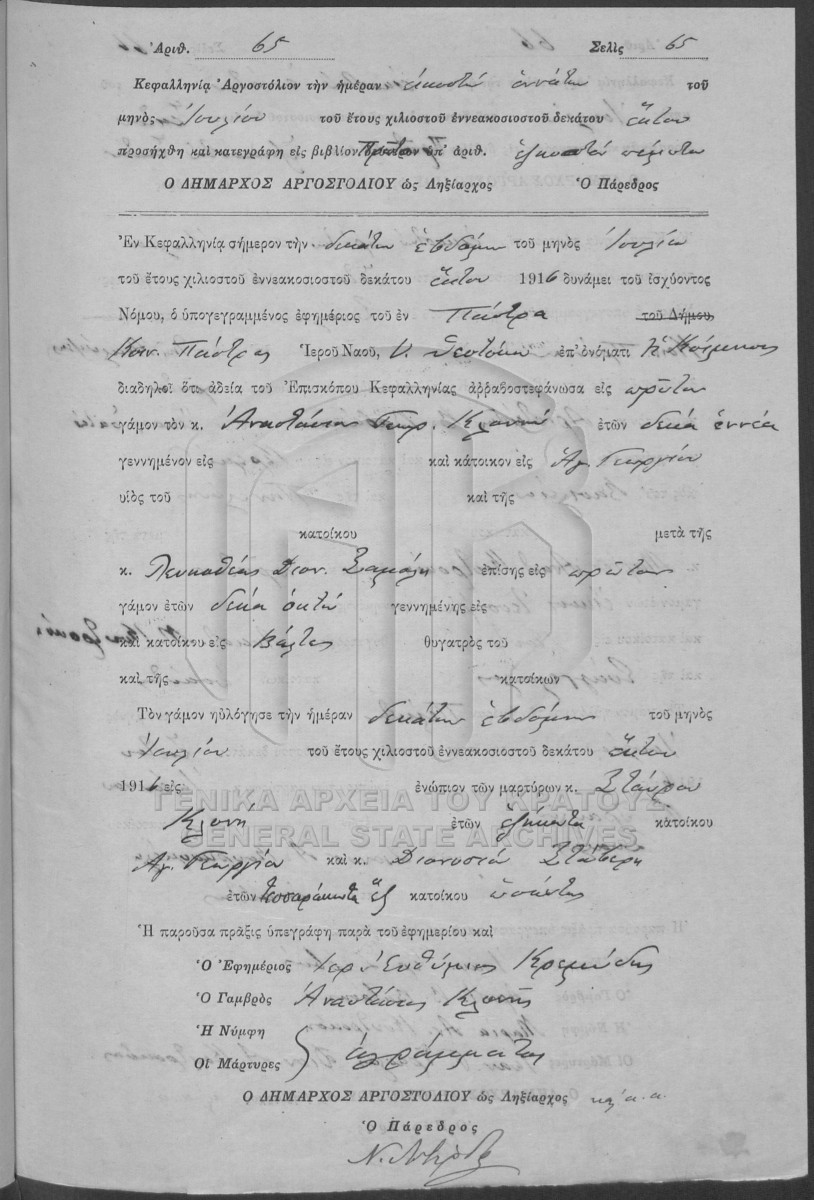 Ἀριθ. 65 Σελὶς 65
Κεφαλληνίᾳ Ἀργοστόλιον τὴν ἡμέραν εἰκοστὴν ἐννάτην τοῦ
μηνὸς Ἰουλίου τοῦ ἔτους χιλιοστοῦ ἐννεακοσιοστοῦ δεκάτου ἕκτου
προσήχθη καὶ κατεγράφη εἰς βιβλίον ὑπ' ἀριθ. ἑξηκοστὸν πέμπτον
Ο ΔΗΜΑΡΧΟΣ ΑΡΓΟΣΤΟΛΙΟΥ ὡς Ληξίαρχος Ὁ Πάρεδρος
Ἐν Κεφαλληνίᾳ σήμερον τὴν δεκάτην ἑβδόμην τοῦ μηνὸς Ἰουλίου
τοῦ ἔτους χιλιοστοῦ ἐννεακοσιοστοῦ δεκάτου ἕκτου 1916 δυνάμει τοῦ ἰσχύοντος
Νόμου, ὁ ὑπογεγραμμένος ἐφημέριος τοῦ ἐν Πάστρα τοῦ Δήμου
Κοιν. Πάστρας Ἱεροῦ Ναοῦ, Υ. Θεοτόκου ἐπ' ὀνόματι
διαδηλοῖ ὅτι ἀδείᾳ τοῦ Ἐπισκόπου Κεφαλληνίας ἀῤῥαβοστεφάνωσα εἰς πρῶτον
γάμον τὸν κ. Ἀναστάσιον Γεωρ. Κλονῆ ἐτῶν δεκά ἐννέα
γεννημένον εἰς καὶ κάτοικον εἰς Ἁγ. Γεωργίου
υἱὸς τοῦ καὶ τῆς
κατοίκου μετὰ τῆς
κ. Λευκοθέας Διον. ἐπίσης εἰς πρῶτον
γάμον ἐτῶν δεκά ὀκτώ γεννημένης εἰς
καὶ κατοίκου εἰς Βάλτες θυγατρὸς τοῦ
καὶ τῆς κατοίκων
Τὸν γάμον ηὐλόγησε τὴν ἡμέραν δεκάτην ἑβδόμην τοῦ μηνὸς
Ἰουλίου τοῦ ἔτους χιλιοστοῦ ἐννεακοσιοστοῦ δεκάτου ἕκτου
1916 εἰς ἐνώπιον τῶν μαρτύρων κ. Σταύρου
Κλονῆ ἐτῶν ἑξήκοντα κατοίκου
Ἁγ. Γεωργίου καὶ κ. Διονυσίου
ἐτῶν τεσσαράκοντα ἓξ κατοίκου ὡσαύτως
Ἡ παροῦσα πρᾶξις ὑπεγράφη παρὰ τοῦ ἐφημερίου καὶ
Ὁ Ἐφημέριος Ἱερεὺς Εὐθύμιος
Ὁ Γαμβρὸς Ἀναστάσιος Κλονῆς
Ἡ Νύμφη
Οἱ Μάρτυρες ἀγράμματοι
Ὁ ΔΗΜΑΡΧΟΣ ΑΡΓΟΣΤΟΛΙΟΥ ὡς Ληξίαρχος
Ὁ Πάρεδρος
ΓΕΝΙΚΑ ΑΡΧΕΙΑ ΤΟΥ ΚΡΑΤΟΥΣ
GENERAL STATE ARCHIVES